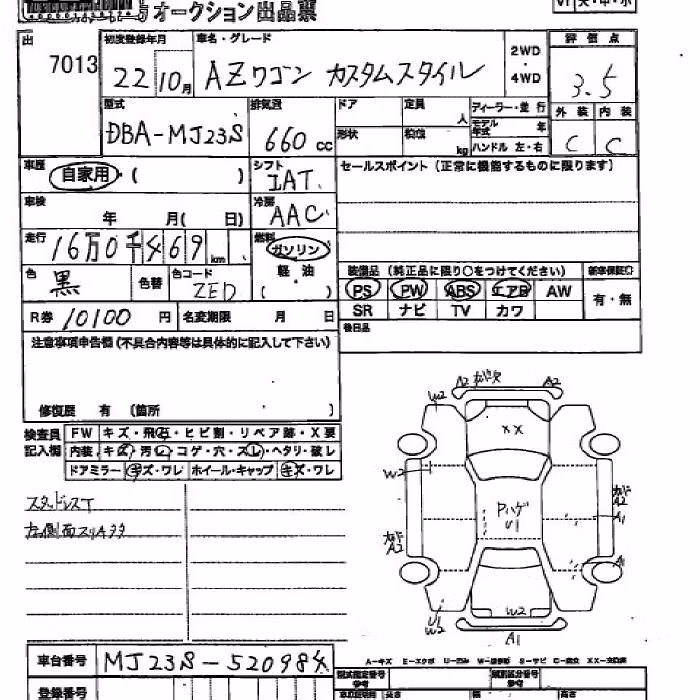 オークション出品票
出
7013
初度登録年月
22 10月
車名・グレード
AZワゴン カスタムスタイル
2WD
・
4WD
評価点
3.5
型式
DBA-MJ23S
排気量
660 cc
ドア
定員
人
形状
積位
kg
ディーラー・並行
モデル年式
年
ハンドル 左・右
外装 内装
C C
車歴
自家用・( )
シフト
IAT
セールスポイント (正常に機能するものに限ります)
車検
年 月( 日)
冷房
AAC
走行
16万0千469km
燃料
ガソリン
・
軽油
・
( )
色
黒
色替
色コード
ZED
装備品 (純正品に限り○をつけてください)
新車保証○
PS PW ABS エアB AW
SR ナビ TV カワ
有・無
R券 10100 円
名変期限 月 日
後日品
注意事項申告欄 (不具合内容等は具体的に記入して下さい)
修復歴 有 (箇所 )
検査員
記入欄
FW キズ・飛石・ヒビ割・リペア跡・X要
内装 キズ・汚レ・コゲ・穴・スレ・ヘタリ・破レ
ドアミラー キズ・ワレ ホイール・キャップ キズ・ワレ
スタッドレスT
左側面スリキタ
A2 ガド欠 A2
W2
XX
W2
Pハゲ
U1
A2
A2
A1
A1
U1
W2
W2
A1
車台番号
MJ23S-520984
登録番号
A-キズ E-エクボ U-凹み W-補修跡 S-サビ C-腐食 XX-交換済
型式指定番号
参考
類別区分番号
参考
長さ
幅
高さ